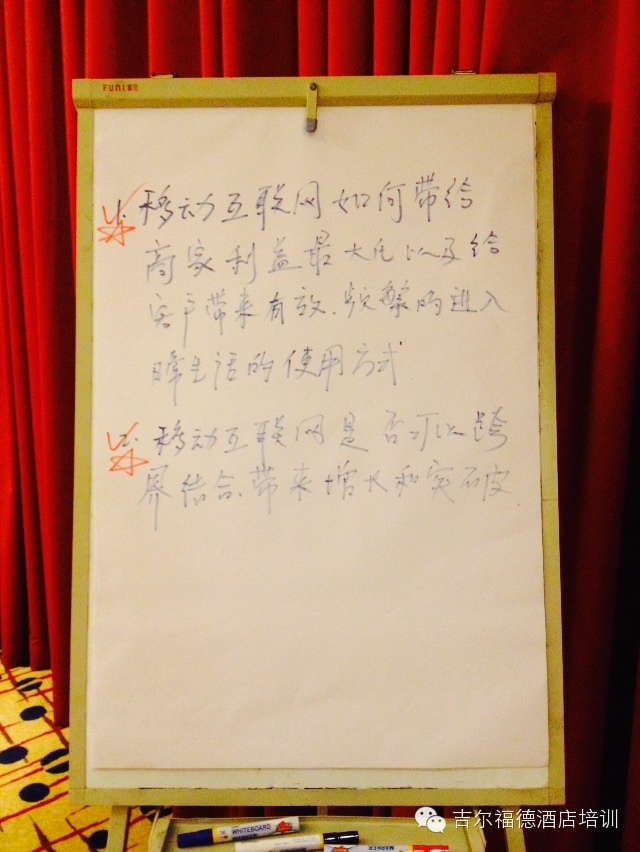 FUNI富尼
1. 移动互联网如何带给
商家利益最大化以及给
客户带来有效.频繁的进入
日常生活的使用方式.
2. 移动互联网是否可以跨
界结合.带来增长和突破.
WHITEBOARD
MARKER
MARKER
吉尔福德酒店培训